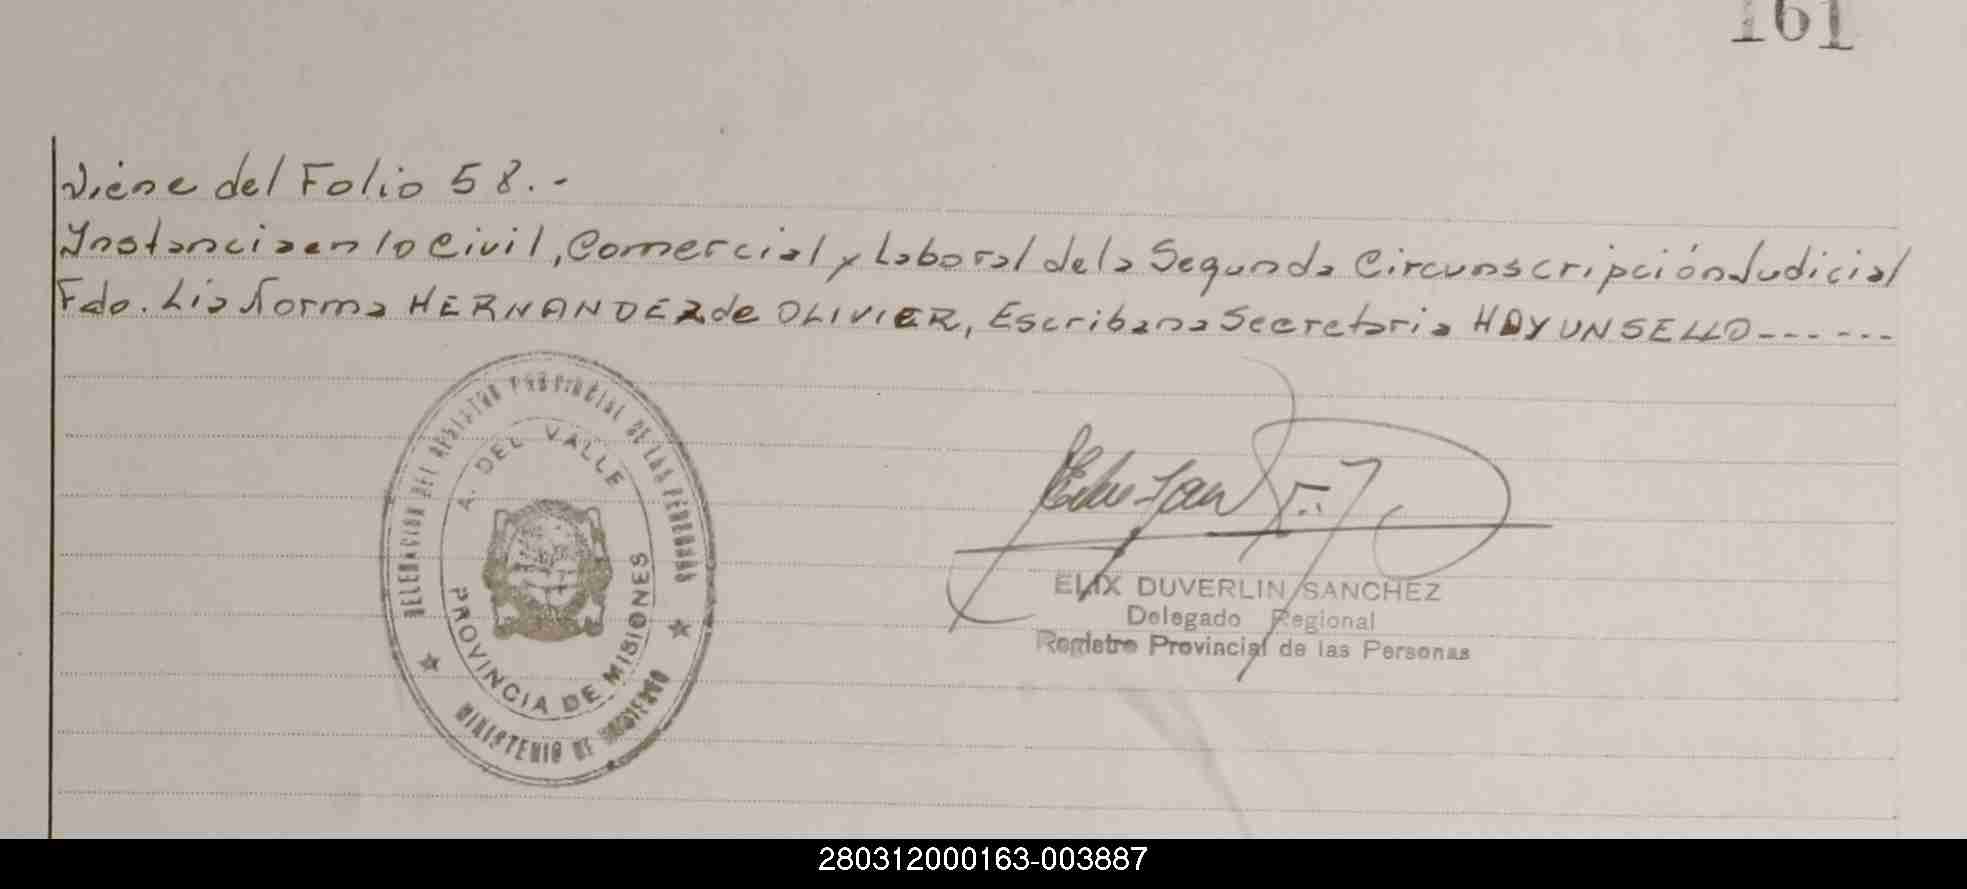 161
Viene del Folio 58.-
Instancia en lo Civil, Comercial y Laboral de la Segunda Circunscripción Judicial
Fdo. Lia Norma HERNANDEZ de OLIVIER, Escribana Secretaria HAY UN SELLO------
DELEGACION DEL REGISTRO PROVINCIAL DE LAS PERSONAS
A. DEL VALLE
PROVINCIA DE MISIONES
MINISTERIO DE GOBIERNO
ELIX DUVERLIN SANCHEZ
Delegado Regional
Registro Provincial de las Personas
280312000163-003887